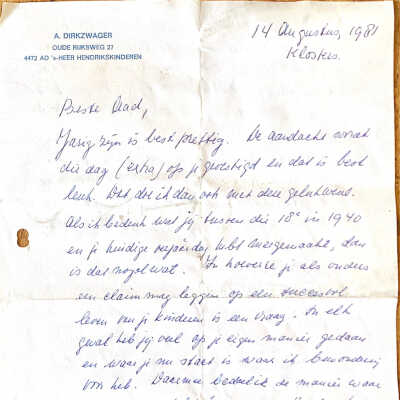 A. DIRKZWAGER
OUDE RIJKSWEG 27
4472 AD 's-HEER HENDRIKSKINDEREN
14 Augustus 1981
Klosters.
Beste Aad,
Jarig zijn is best prettig. De aandacht wordt
die dag (extra) op je gevestigd en dat is best
leuk. Dat doe ik dan ook met deze gelukwens.
Als ik bedenk wat jij tussen die 18e in 1940
en je huidige verjaardag hebt meegemaakt, dan
is dat nogal wat. In hoeverre je als ouders
een claim mag leggen op een succesvol
leven van je kinderen is een vraag. In elk
geval heb jij veel op je eigen manier gedaan
en waar je nu staat is waar ik bewondering
voor heb. Daarmee bedoel ik de manier waar